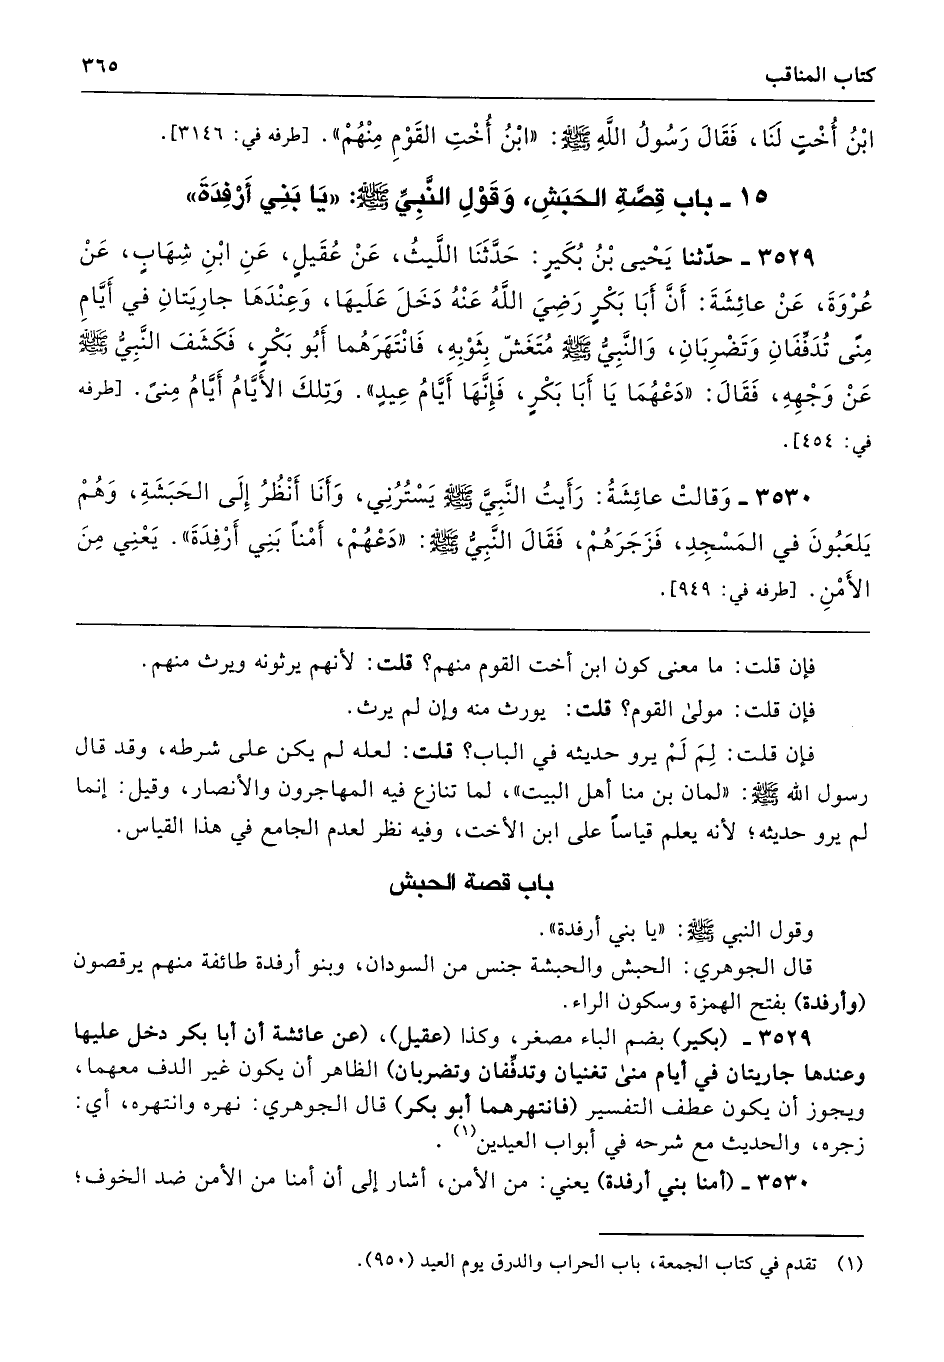 كتاب المناقب
٣٦٥
ابْنُ أُخْتٍ لَنَا، فَقَالَ رَسُولُ اللَّهِ ﷺ: «ابْنُ أُخْتِ القَوْمِ مِنْهُمْ». [طرفه في: ٣١٤٦].
١٥ ـ باب قِصَّةِ الحَبَشِ، وَقَوْلِ النَّبِيِّ ﷺ: «يَا بَنِي أَرْفِدَةَ»
٣٥٢٩ ـ حدّثنا يَحْيى بْنُ بُكَيرٍ: حَدَّثَنَا اللَّيثُ، عَنْ عُقَيلٍ، عَنِ ابْنِ شِهَابٍ، عَنْ
عُرْوَةَ، عَنْ عائِشَةَ: أَنَّ أَبَا بَكْرٍ رَضِيَ اللَّهُ عَنْهُ دَخَلَ عَلَيهَا، وَعِنْدَهَا جارِيَتانِ في أَيَّامِ
مِنًى تُدَفِّفَانِ وَتَضْرِبَانِ، وَالنَّبِيُّ ﷺ مُتَغَشّ بِثَوْبِهِ، فَانْتَهَرَهُما أَبُو بَكْرٍ، فَكَشَفَ النَّبِيُّ ﷺ
عَنْ وَجْهِهِ، فَقَالَ: «دَعْهُمَا يَا أَبَا بَكْرٍ، فَإِنَّهَا أَيَّامُ عِيدٍ». وَتِلكَ الأَيَّامُ أَيَّامُ مِنىً. [طرفه
في: ٤٥٤].
٣٥٣٠ ـ وَقالتْ عائِشَةُ: رَأَيتُ النَّبِيَّ ﷺ يَسْتُرُنِي، وَأَنَا أَنْظُرُ إِلَى الحَبَشَةِ، وَهُمْ
يَلعَبُونَ في المَسْجِدِ، فَزَجَرَهُمْ، فَقَالَ النَّبِيُّ ﷺ: «دَعْهُمْ، أَمْناً بَنِي أَرْفِدَةَ». يَعْنِي مِنَ
الأَمْنِ. [طرفه في: ٩٤٩].
فإن قلت: ما معنى كون ابن أخت القوم منهم؟ قلت: لأنهم يرثونه ويرث منهم.
فإن قلت: مولىٰ القوم؟ قلت: يورث منه وإن لم يرث.
فإن قلت: لِمَ لَمْ يرو حديثه في الباب؟ قلت: لعله لم يكن على شرطه، وقد قال
رسول الله ﷺ: «لمان بن منا أهل البيت»، لما تنازع فيه المهاجرون والأنصار، وقيل: إنما
لم يرو حديثه؛ لأنه يعلم قياساً على ابن الأخت، وفيه نظر لعدم الجامع في هذا القياس.
باب قصة الحبش
وقول النبي ﷺ: «يا بني أرفدة».
قال الجوهري: الحبش والحبشة جنس من السودان، وبنو أرفدة طائفة منهم يرقصون
(وأرفدة) بفتح الهمزة وسكون الراء.
٣٥٢٩ ـ (بكير) بضم الباء مصغر، وكذا (عقيل)، (عن عائشة أن أبا بكر دخل عليها
وعندها جاريتان في أيام منىٰ تغنيان وتدفِّفان وتضربان) الظاهر أن يكون غير الدف معهما،
ويجوز أن يكون عطف التفسير (فانتهرهما أبو بكر) قال الجوهري: نهره وانتهره، أي:
زجره، والحديث مع شرحه في أبواب العيدين(١).
٣٥٣٠ ـ (أمنا بني أرفدة) يعني: من الأمن، أشار إلى أن أمنا من الأمن ضد الخوف؛
(١) تقدم في كتاب الجمعة، باب الحراب والدرق يوم العيد (٩٥٠).